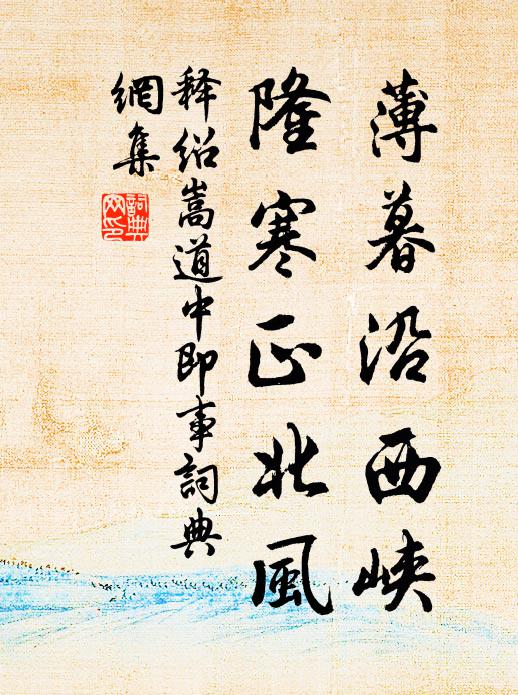 薄暮沿西峡
隆寒正北風
释绍嵩道中即事詞典
網集
詞典
网印